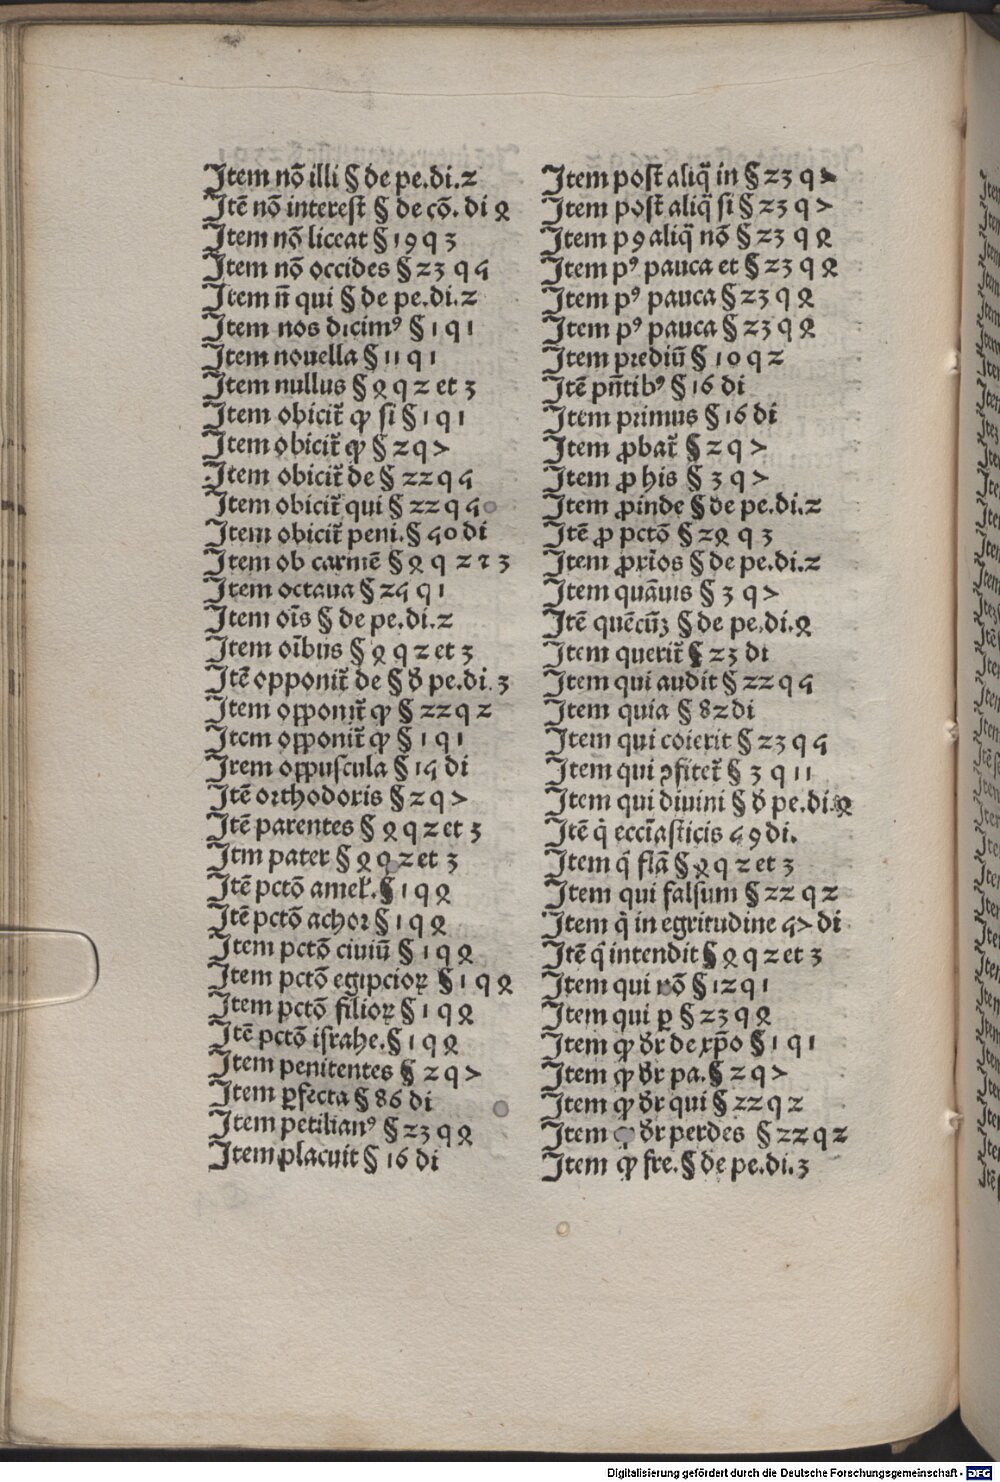 Item nō illi § de pe.di.2
Itē nō interest̄ § de cō. di 4
Item nō liccat § 19 q 3
Item nō occides § 23 q 5
Item n̄ qui § de pe.di.2
Item nos dicimꝰ § 1 q 1
Item nouella § 11 q 1
Item nullus § 4 q 2 et 3
Item obicit̄ ꝙ si § 1 q 1
Item obicit̄ ꝙ § 2 q 7
Item obicit̄ de § 22 q 5
Item obicit̄ qui § 22 q 5
Item obicit̄ peni.§ 50 di
Item ob carmē § 4 q 2 ⁊ 3
Item octaua § 25 q 1
Item oīs § de pe.di.2
Item oībus § 4 q 2 et 3
Itē opponit̄ de § ð pe.di.3
Item opponit̄ ꝙ § 22 q 2
Item opponit̄ ꝙ § 1 q 1
Irem oppuscula § 15 di
Itē orthodoxis § 2 q 7
Itē parentes § 4 q 2 et 3
Itm pater § 4 q 2 et 3
Itē pctō amel'.§ 1 q 4
Itē pctō achor § 1 q 4
Item pctō ciuiū § 1 q 4
Item pctō egipcioꝝ § 1 q 4
Item pctō filioꝝ § 1 q 4
Itē pctō israhe.§ 1 q 4
Item penitentes § 2 q 7
Item ꝑfecta § 86 di
Item petilianꝰ § 23 q 4
Item placuit § 16 di
Item post̄ aliq̄ in § 23 q 7
Item post̄ aliq̄ si § 23 q 7
Item pꝰ aliq̄ nō § 23 q 4
Item pꝰ pauca et § 23 q 4
Item pꝰ pauca § 23 q 4
Item pꝰ pauca § 23 q 4
Item prediū § 10 q 2
Itē pn̄tibꝰ § 16 di
Item primus § 16 di
Item ꝓbat̄ § 2 q 7
Item ꝓ his § 3 q 7
Item ꝓinde § de pe.di.2
Itē ꝓ pctō § 24 q 3
Item ꝓxīos § de pe.di.2
Item quāuis § 3 q 7
Itē quēcūꝫ § de pe.di.4
Item querit̄ § 23 di
Item qui audit § 22 q 5
Item quia § 82 di
Item qui coierit § 23 q 5
Item qui ꝯfitet̄ § 3 q 11
Item qui diuini § ð pe.di.4
Itē q̄ eccīasticis 59 di.
Item q̄ flā § 4 q 2 et 3
Item qui falsum § 22 q 2
Item q̄ in egritudine 57 di
Itē q̄ intendit § 4 q 2 et 3
Item qui rō § 12 q 1
Item qui ꝑ § 23 q 4
Item ꝙ ðr de xp̄o § 1 q 1
Item ꝙ ðr pa.§ 2 q 7
Item ꝙ ðr qui § 22 q 2
Item ðr perdes § 22 q 2
Item ꝙ fre.§ de pe.di.3
Digitalisierung gefördert durch die Deutsche Forschungsgemeinschaft - DFG